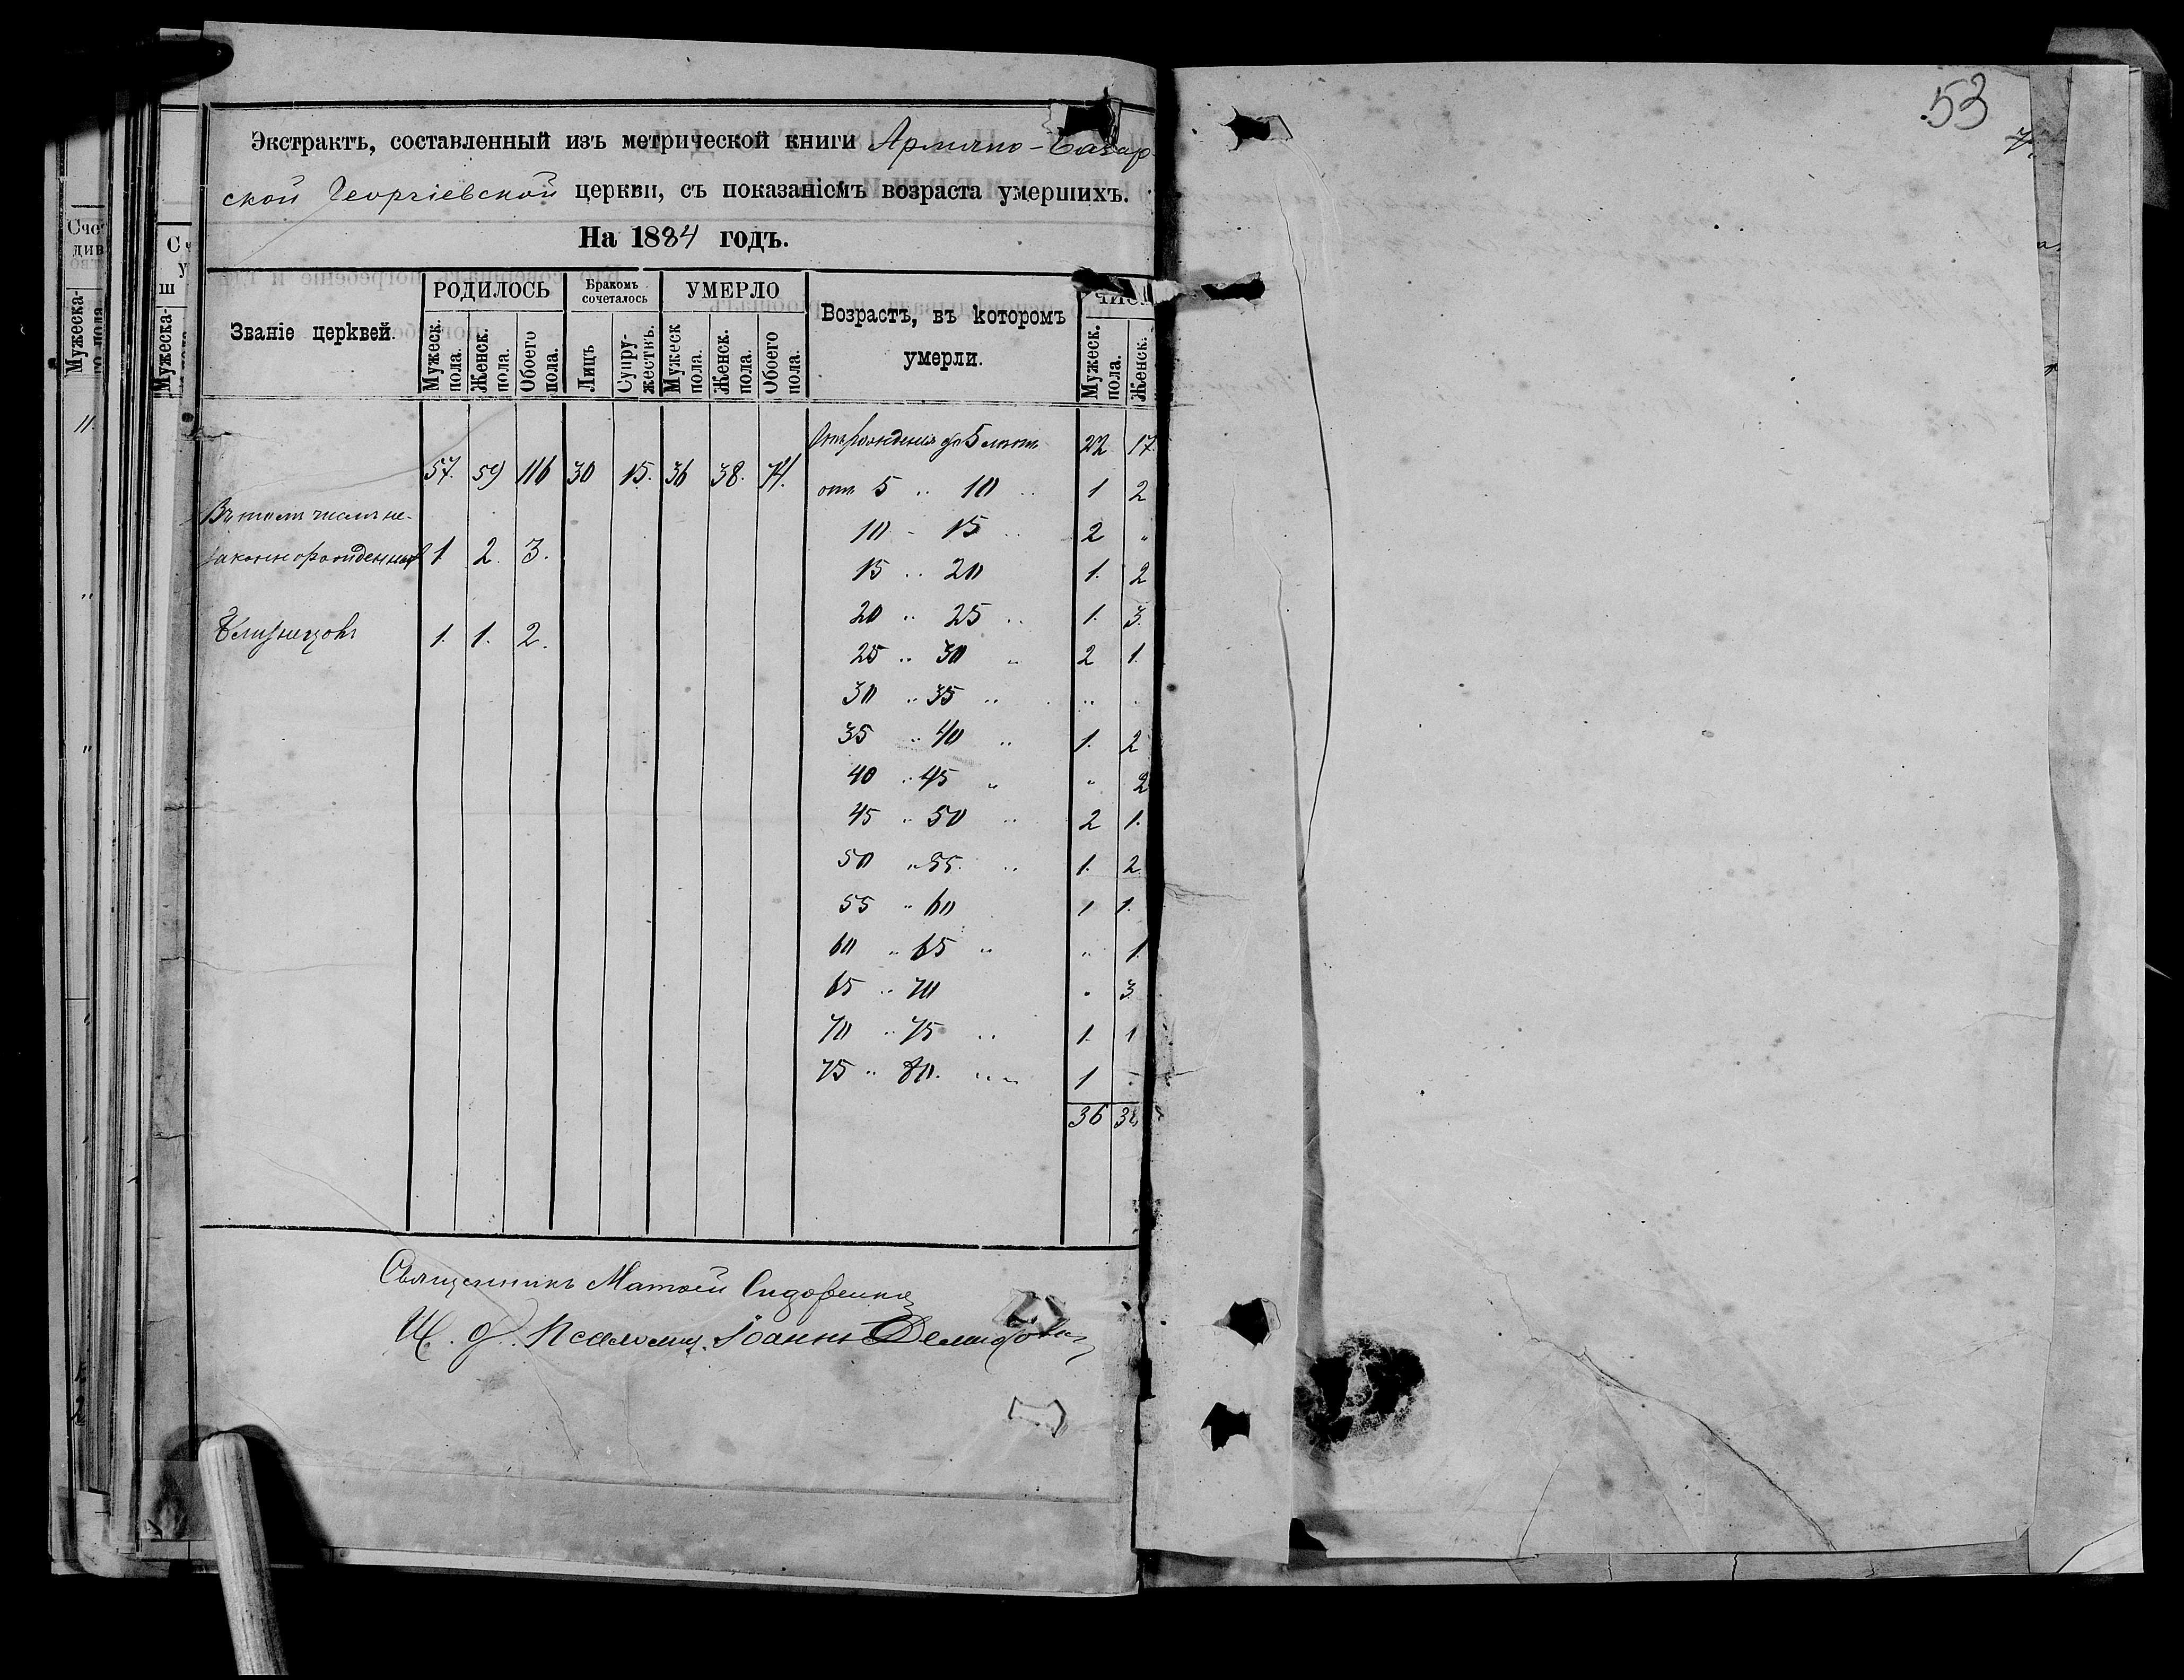 53
Экстрактъ, составленный изъ метрической книги Армяно-Базар-
ской Георгіевской церкви, съ показаніемъ возраста умершихъ.
На 1884 годъ.
Званіе церквей.
РОДИЛОСЬ
Бракомъ сочеталось
УМЕРЛО
Возрастъ, въ которомъ умерли.
Мужеск. пола.
Женск. пола.
Обоего пола.
Лицъ
Супру-жествъ.
Мужеск пола.
Женск. пола.
Обоего пола.
Мужеск. пола.
Женск.
57. 59 116 30 15. 36 38. 74.
Въ томъ числѣ не-
законнорожденныхъ 1 2. 3.
Близнецовъ 1. 1. 2.
Отъ рожденія до 5 лѣтъ 22 17.
отъ 5 „ 10 „ 1 2
10 - 15 „ 2 „
15 „ 20 1. 2
20 „ 25 „ 1. 3.
25 „ 30 „ 2 1.
30 „ 35 „ „ „
35 „ 40 „ 1. 2
40 „ 45 „ „ 2
45 „ 50 „ 2 1.
50 „ 55. „ 1. 2.
55 „ 60 1 1.
60 „ 65 „ „ 1
65 „ 70 „ 3.
70 „ 75 „ 1. 1
75 „ 80. „ „ 1 -
36 38
Священникъ Матѳей Сидоренко
И. д. Псаломщ. Іоаннъ Демидовъ